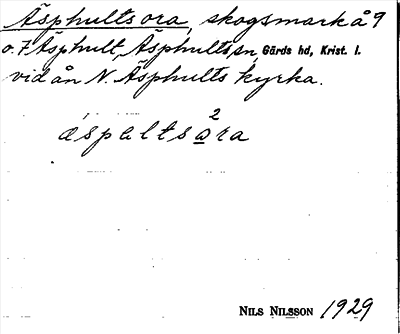 Äsphultsora, skogsmark å 9
o. 7 Äsphult, Äsphults sn, Gärds hd, Krist. l.
vid ån N. Äsphults kyrka.
æspɐltsɒra
NILS NILSSON 1929